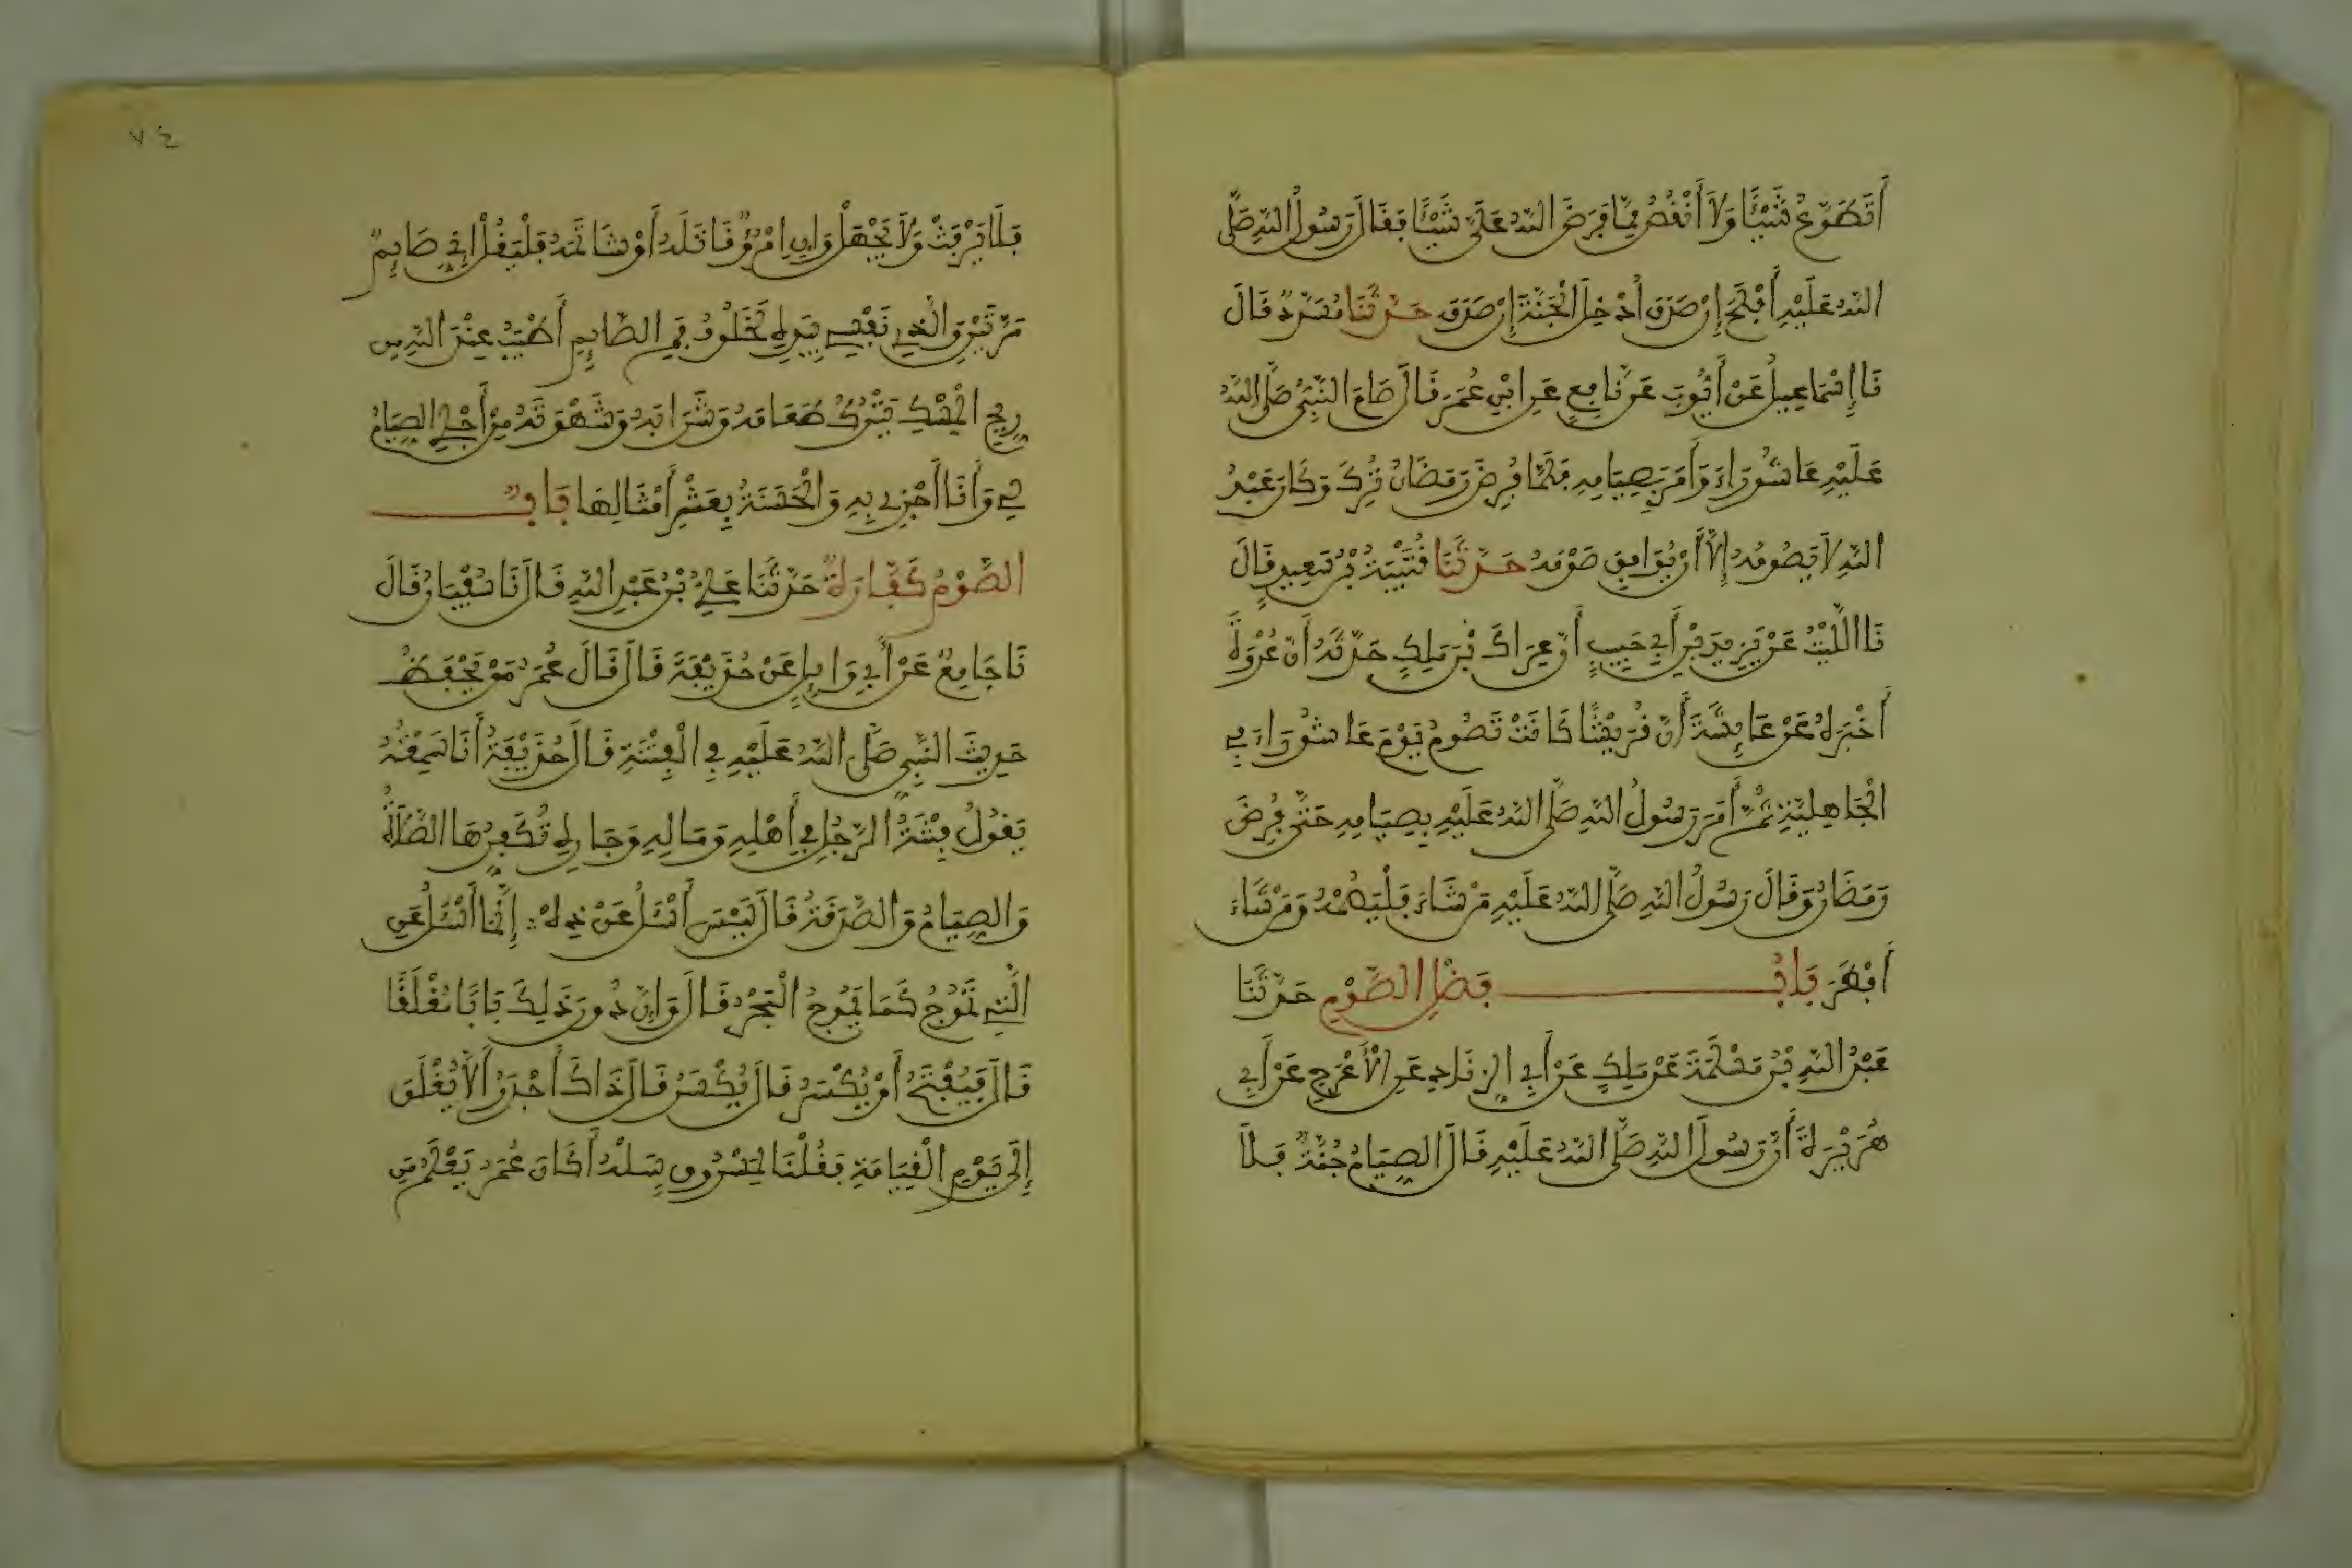 أَتَطَوَّعُ شَيْئًا وَلَا أَنْقُصُ مِمَّا فَرَضَ اللهُ عَلَيَّ شَيْئًا فَقَالَ رَسُولُ اللهِ صَلَّى
اللهُ عَلَيْهِ أَفْلَحَ إِنْ صَدَقَ أُدْخِلَ الْجَنَّةَ إِنْ صَدَقَ حَدَّثَنَا مُسَدَّدٌ قَالَ
نَا إِسْمَاعِيلُ عَنْ أَيُّوبَ عَنْ نَّافِعٍ عَنِ ابْنِ عُمَرَ قَالَ صَامَ النَّبِيُّ صَلَّى اللهُ
عَلَيْهِ عَاشُورَاءَ وَأَمَرَ بِصِيَامِهِ فَلَمَّا فُرِضَ رَمَضَانُ تُرِكَ وَكَانَ عَبْدُ
اللهِ لَا يَصُومُهُ إِلَّا أَنْ يُوَافِقَ صَوْمَهُ حَدَّثَنَا قُتَيْبَةُ بْنُ سَعِيدٍ قَالَ
نَا اللَّيْثُ عَنْ يَزِيدَ بْنِ أَبِي حَبِيبٍ أَنَّ عِرَاكَ بْنَ مَلِكٍ حَدَّثَهُ أَنَّ عُرْوَةَ
أَخْبَرَهُ عَنْ عَائِشَةَ أَنَّ قُرَيْشًا كَانَتْ تَصُومُ يَوْمَ عَاشُورَاءَ فِي
الْجَاهِلِيَّةِ ثُمَّ أَمَرَ رَسُولُ اللهِ صَلَّى اللهُ عَلَيْهِ بِصِيَامِهِ حَتَّى فُرِضَ
رَمَضَانُ وَقَالَ رَسُولُ اللهِ صَلَّى اللهُ عَلَيْهِ مَنْ شَاءَ فَلْيَصُمْهُ وَمَنْ شَاءَ
أَفْطَرَ بَابُ فَضْلِ الصَّوْمِ حَدَّثَنَا
عَبْدُ اللهِ بْنُ مَسْلَمَةَ عَنْ مَلِكٍ عَنْ أَبِي الزِّنَادِ عَنِ الْأَعْرَجِ عَنْ أَبِي
هُرَيْرَةَ أَنَّ رَسُولَ اللهِ صَلَّى اللهُ عَلَيْهِ قَالَ الصِّيَامُ جُنَّةٌ فَلَا
٧٤
فَلَا يَرْفَثْ وَلَا يَجْهَلْ وَإِنِ امْرُؤٌ قَاتَلَهُ أَوْ شَاتَمَهُ فَلْيَقُلْ إِنِّي صَايِمٌ
مَرَّتَيْنِ وَالَّذِي نَفْسِي بِيَدِهِ لَخُلُوفُ فَمِ الصَّايِمِ أَطْيَبُ عِنْدَ اللهِ مِن
رِيحِ الْمِسْكِ يَتْرُكُ طَعَامَهُ وَشَرَابَهُ وَشَهْوَتَهُ مِنْ أَجْلِي الصِّيَامُ
لِي وَأَنَا أَجْزِي بِهِ وَالْحَسَنَةُ بِعَشْرِ أَمْثَالِهَا بَابٌ
الصَّوْمُ كَفَّارَةٌ حَدَّثَنَا عَلِيُّ بْنُ عَبْدِ اللهِ قَالَ نَا سُفْيَانُ قَالَ
نَا جَامِعٌ عَنْ أَبِي وَايِلٍ عَنْ حُذَيْفَةَ قَالَ قَالَ عُمَرُ مَنْ يَحْفَظُ
حَدِيثَ النَّبِيِّ صَلَّى اللهُ عَلَيْهِ فِي الْفِتْنَةِ قَالَ حُذَيْفَةُ أَنَا سَمِعْتُهُ
يَقُولُ فِتْنَةُ الرَّجُلِ فِي أَهْلِهِ وَمَالِهِ وَجَارِهِ تُكَفِّرُهَا الصَّلَاةُ
وَالصِّيَامُ وَالصَّدَقَةُ قَالَ لَيْسَ أَسْئَلُ عَنْ ذِهْ إِنَّمَا أَسْئَلُ عَنِ
الَّتِي تَمُوجُ كَمَا يَمُوجُ الْبَحْرُ قَالَ وَإِنَّ دُونَ ذَلِكَ بَابًا مُغْلَقًا
قَالَ فَيُفْتَحُ أَوْ يُكْسَرُ قَالَ يُكْسَرُ قَالَ ذَاكَ أَجْدَرُ أَلَّا يُغْلَقَ
إِلَى يَوْمِ الْقِيَامَةِ فَقُلْنَا لِمَسْرُوقٍ سَلْهُ أَكَانَ عُمَرُ يَعْلَمُ مَنِ